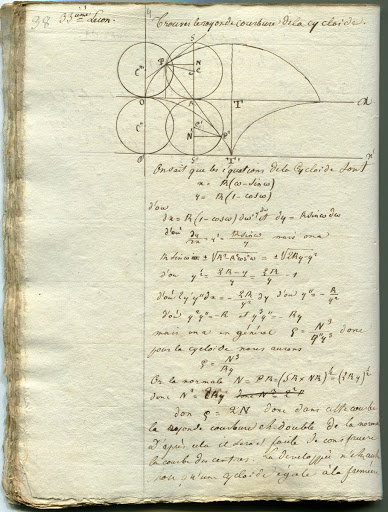 98 33ième Leçon. Trouver le rayon de courbure de la cycloïde.
y
S
P N
C" C
O R T x
C''' N' P'
O' S' T' x'
On sait que les équations de la Cycloïde sont
x = R(ω - sin ω)
y = R(1 - cos ω)
d'où
dx = R(1 - cos ω) dω et dy = R sin ω dω
d'où dy/dx = y' = R sin ω / y mais on a
R sin ω = ± √R² - R² cos² ω = ± √2Ry - y²
d'où y'² = 2R - y / y = 2R / y - 1
d'où 2y' y'' dx = - 2R / y² dy d'où y'' = - R / y²
d'où y² y'' = - R et y³ y'' = - Ry
mais on a en général ρ = N³ / y³ y'' donc
pour la cycloïde nous aurons
ρ = N³ / Ry
Or la normale N = PR = (SR × NR)^½ = (2Ry)^½
donc N² = 2Ry
donc ρ = 2N donc dans cette courbe
le rayon de courbure est double de la normale
d'après cela il serait facile de construire
la courbe des centres. La développée n'est autre
qu'une cycloïde égale à la première